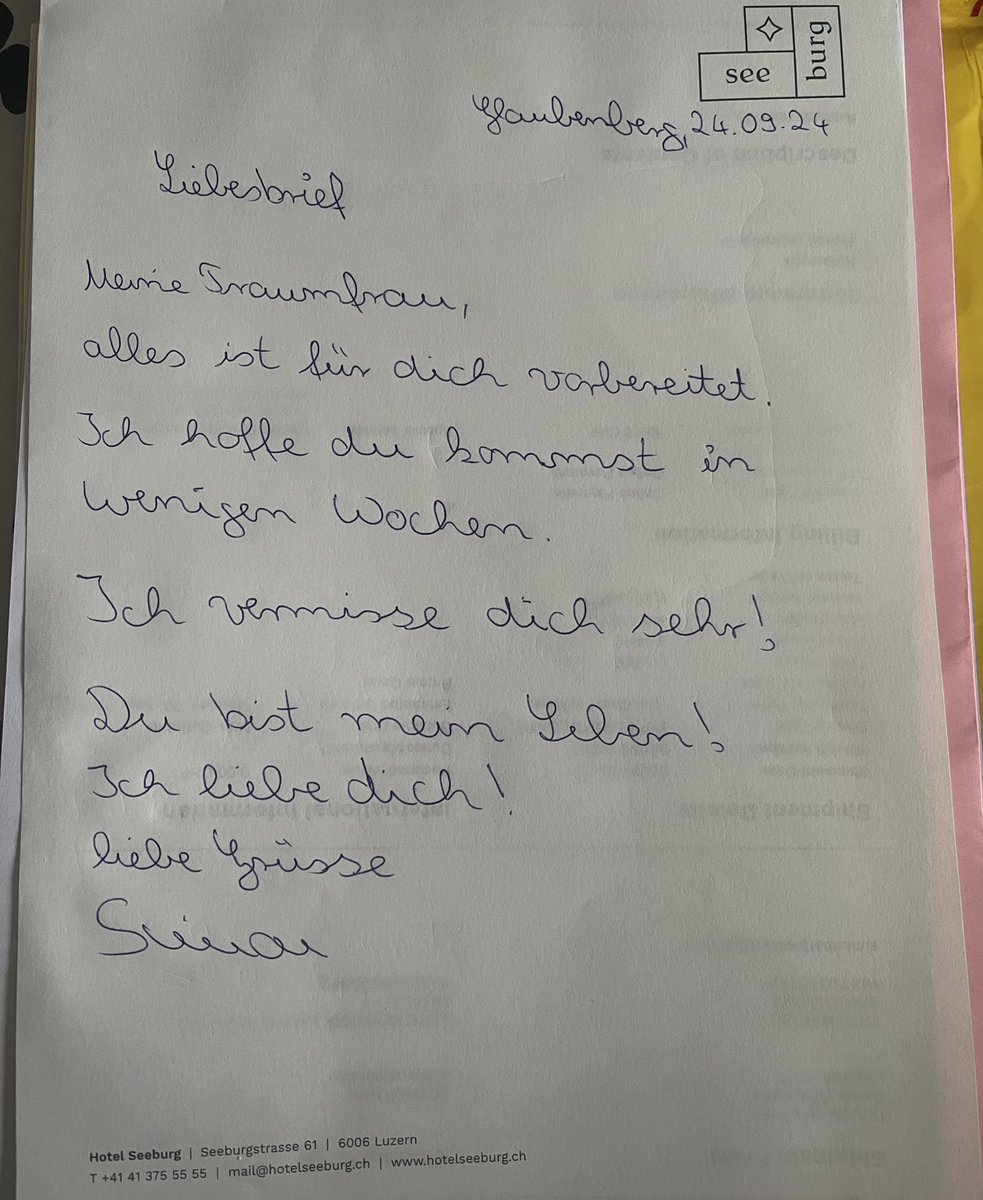 see burg
Glaubenberg, 24.09.24
Liebesbrief
Meine Traumfrau,
alles ist für dich vorbereitet.
Ich hoffe du kommst in
wenigen Wochen.
Ich vermisse dich sehr!
Du bist mein Leben!
Ich liebe dich!
liebe Grüsse
Hotel Seeburg | Seeburgstrasse 61 | 6006 Luzern
T +41 41 375 55 55 | mail@hotelseeburg.ch | www.hotelseeburg.ch